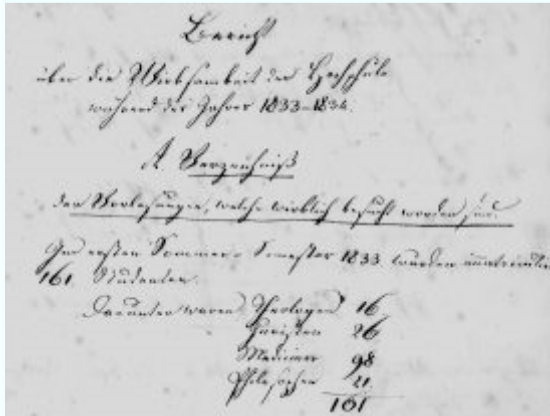 Bericht
über die Wirksamkeit der Hochschule
während des Jahres 1833-1834.
A. Verzeichniß
der Vorlesungen, welche wirklich besucht worden sind.
Im ersten Sommer-Semester 1833 wurden immatriculirt
161. Studenten.
Darunter waren Theologen 16
Juristen 26
Mediciner 98
Philosophen 21.
161